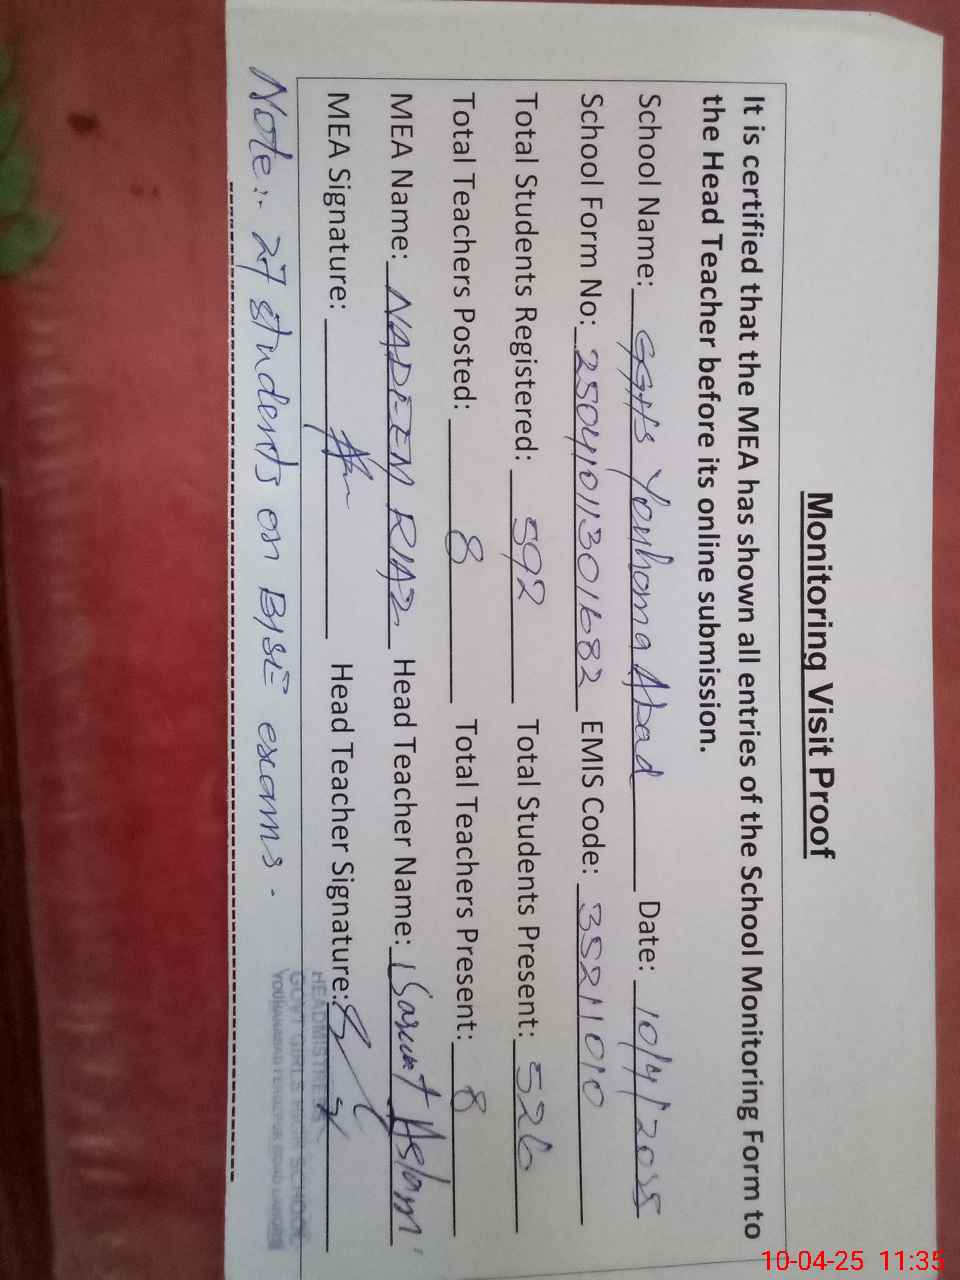 Monitoring Visit Proof
It is certified that the MEA has shown all entries of the School Monitoring Form to
the Head Teacher before its online submission.
School Name: GGHS Youhona Abad Date: 10/4/2025
School Form No: 2504101301682 EMIS Code: 35211010
Total Students Registered: 592 Total Students Present: 526
Total Teachers Posted: 8 Total Teachers Present: 8
MEA Name: NADEEM RIAZ Head Teacher Name: Aslam
MEA Signature: Head Teacher Signature:
HEADMISTRESS
GOVT GIRLS HIGH SCHOOL
Note:- 27 students on BISE exams.
10-04-25 11:35